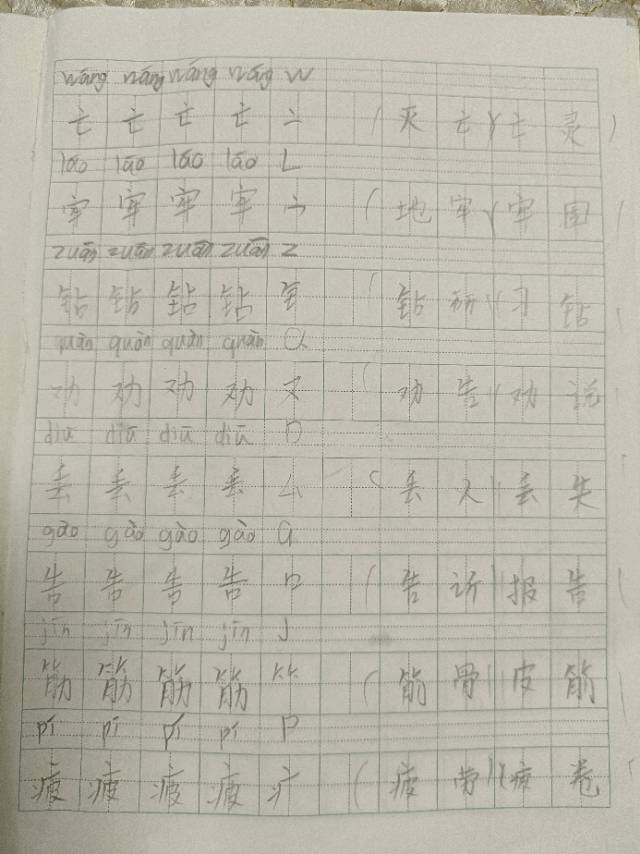 wáng wáng wáng wáng W
亡 亡 亡 亡 亠 (灭亡)(亡灵)
láo láo láo láo L
牢 牢 牢 牢 宀 (地牢)(牢固)
zuān zuān zuān zuān Z
钻 钻 钻 钻 钅 (钻研)(刁钻)
quàn quàn quàn quàn Q
劝 劝 劝 劝 又 (劝告)(劝说)
diū diū diū diū D
丢 丢 丢 丢 厶 (丢人)(丢失)
gào gào gào gào G
告 告 告 告 口 (告诉)(报告)
jīn jīn jīn jīn J
筋 筋 筋 筋 ⺮ (筋骨)(皮筋)
pí pí pí pí P
疲 疲 疲 疲 疒 (疲劳)(疲